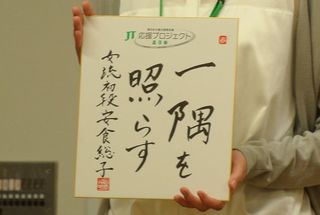 JT 応援プロジェクト
一隅を
照らす
女流初段 安食総子